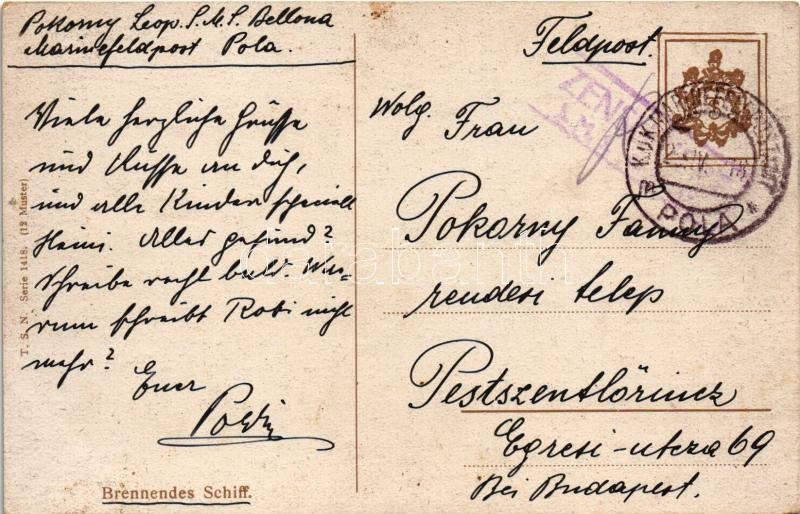 Pokorny Leop. S.M.S. Bellona
Marinefeldpost Pola.
Viele herzliche Grüsse
und Küsse an dich,
und alle Kinder speciell
Heini. Alles gesund?
Schreibe recht bald. Wa-
rum schreibt Robi nicht
mehr?
Euer
Poldi
Brennendes Schiff.
T. S. N. Serie 1418. (12 Muster)
Feldpost.
ZEN
Wolg. Frau
Pokorny Fanny
rendesi telep
Pestszentlörincz
Egresi-utcza 69
Bei Budapest.
K.U.K. MARINEFELDPOSTAMT
POLA
darabanth